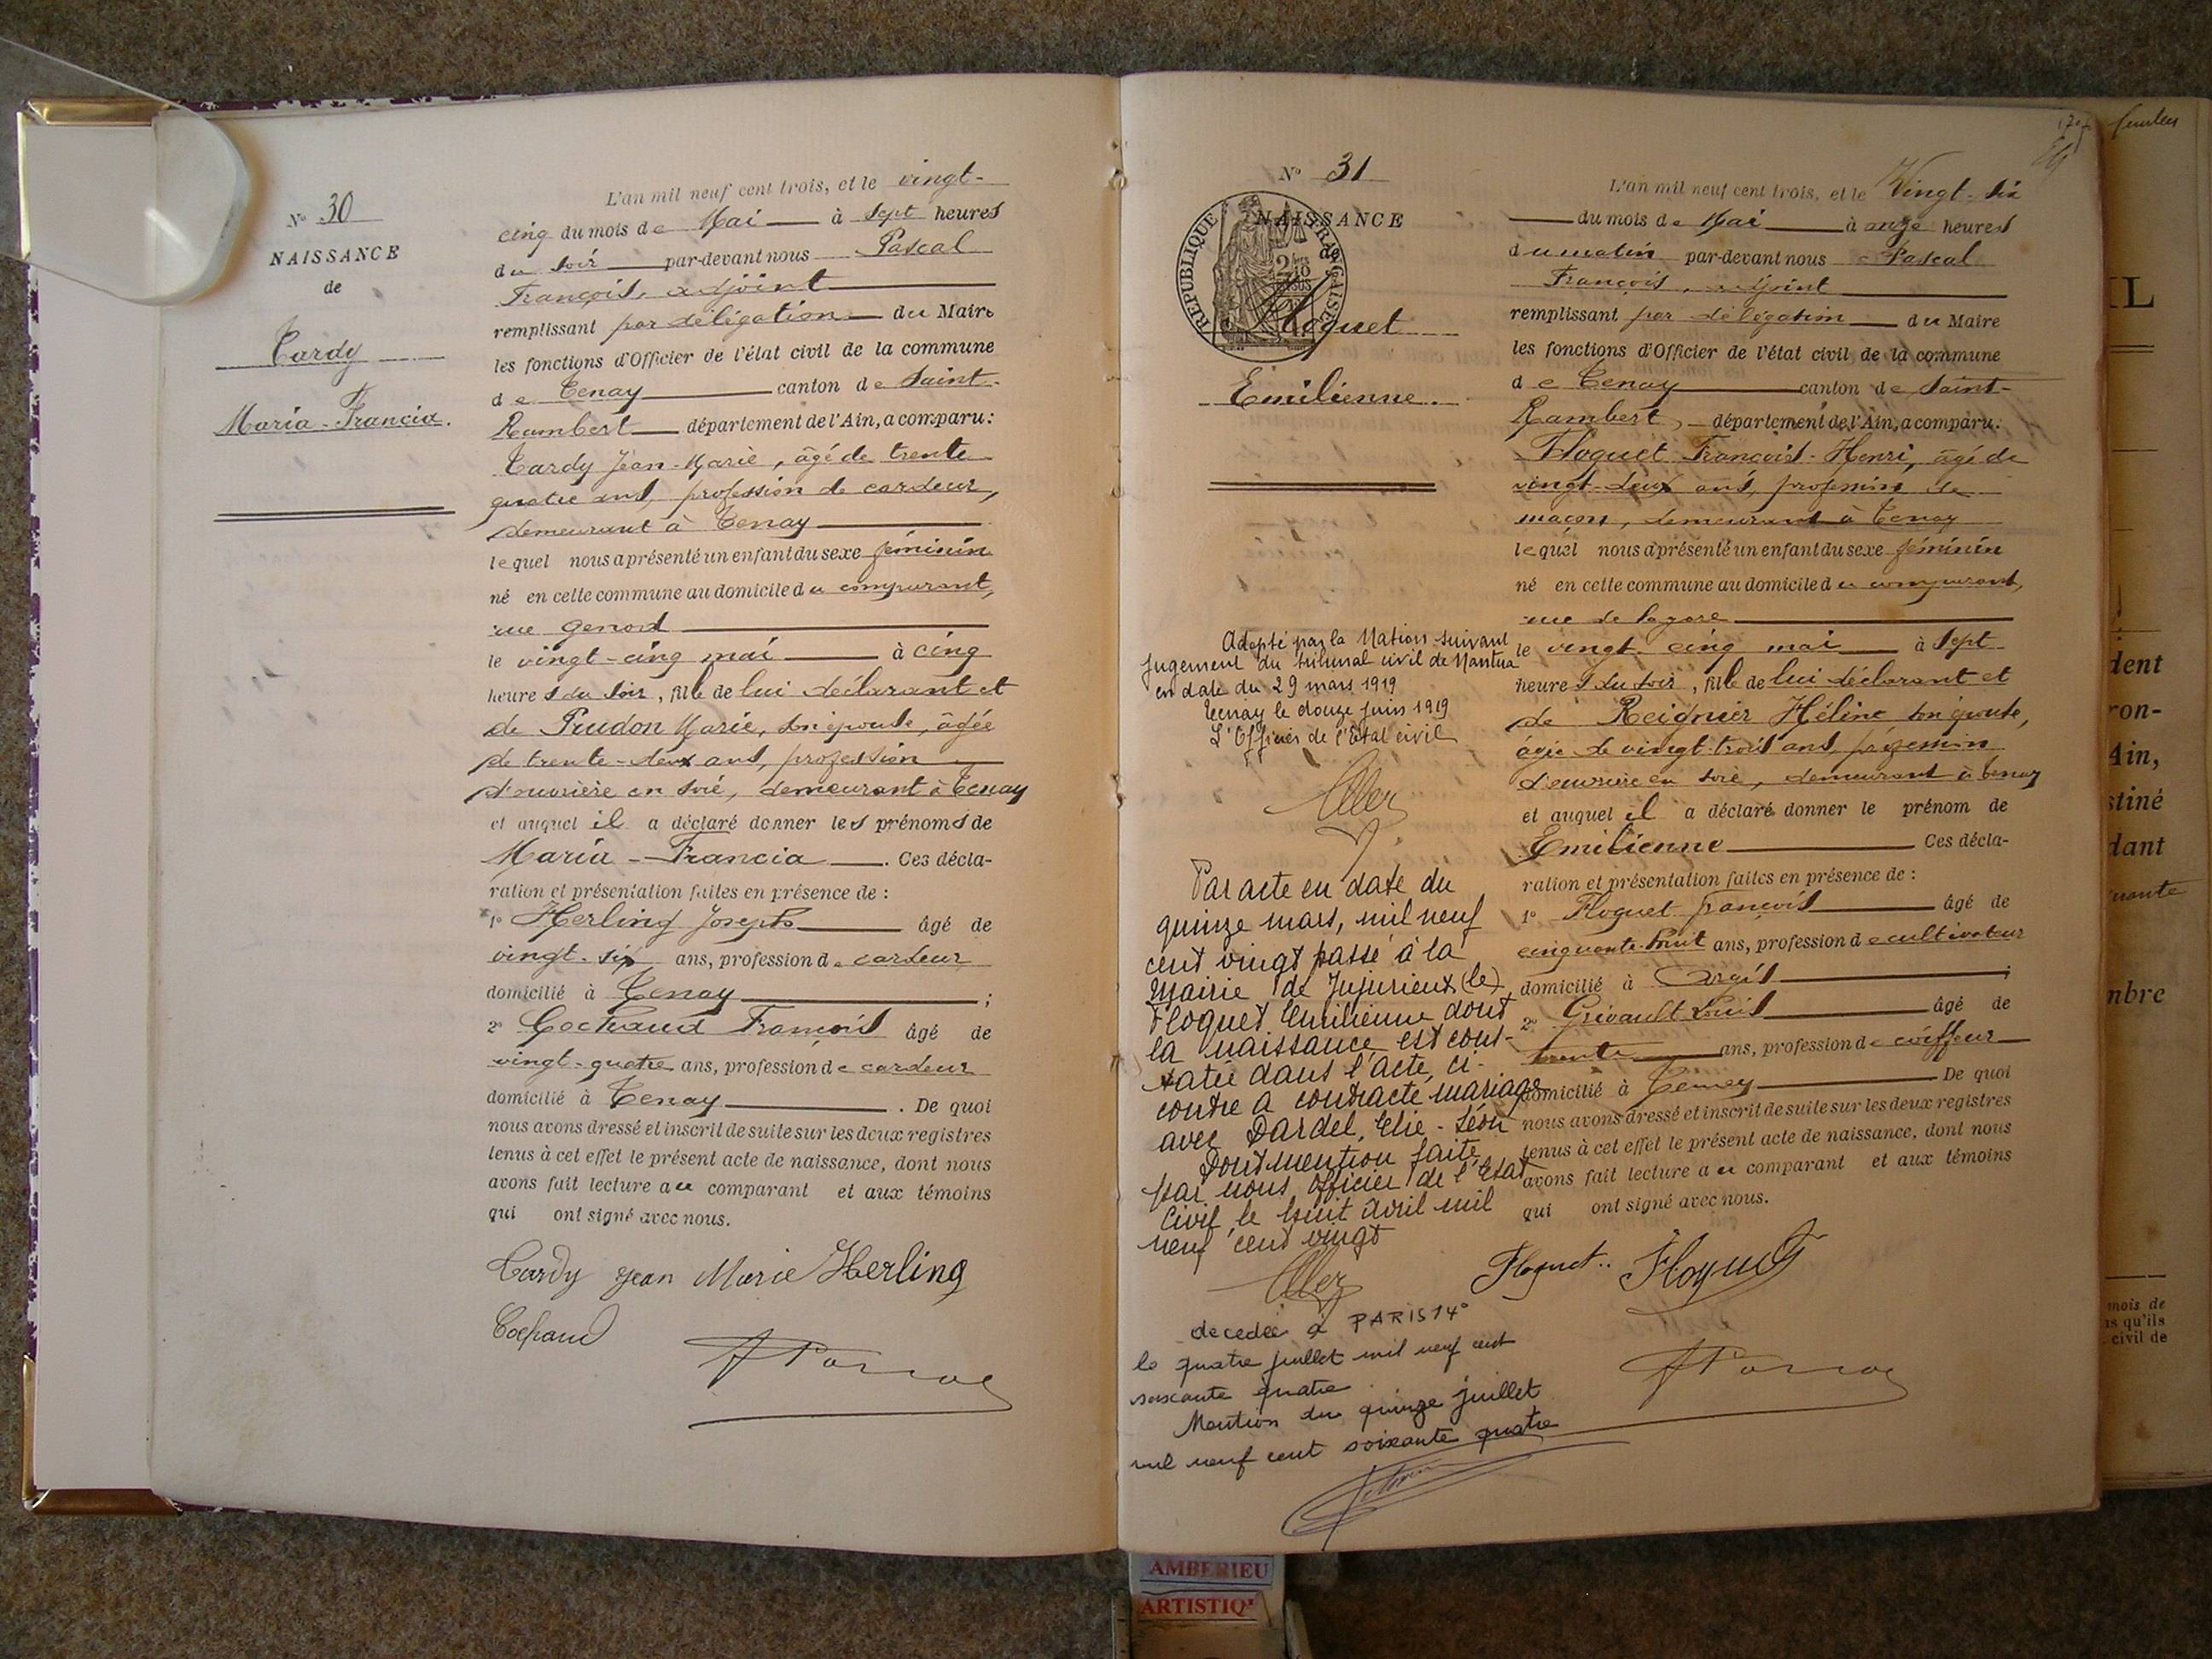 N° 30
NAISSANCE
de
Tardy
Maria-Francia.
L'an mil neuf cent trois, et le vingt-
cinq du mois de Mai à sept heures
du soir par-devant nous Pascal
François, adjoint
remplissant par délégation du Maire
les fonctions d'Officier de l'état civil de la commune
de Tenay canton de Saint-
Rambert département de l'Ain, a comparu:
Tardy Jean-Marie, âgé de trente
quatre ans, profession de cardeur,
demeurant à Tenay
lequel nous a présenté un enfant du sexe féminin
né en cette commune au domicile du comparant,
rue Genod
le vingt-cinq mai à cinq
heures du soir, fille de lui déclarant et
de Prudon Marie, son épouse, âgée
de trente-deux ans, profession
d'ouvrière en soie, demeurant à Tenay
et auquel il a déclaré donner les prénoms de
Maria-Francia. Ces décla-
ration et présentation faites en présence de :
1° Herling Joseph âgé de
vingt-six ans, profession de cardeur
domicilié à Tenay ;
2° Cochaud François âgé de
vingt-quatre ans, profession de cardeur
domicilié à Tenay. De quoi
nous avons dressé et inscrit de suite sur les deux registres
tenus à cet effet le présent acte de naissance, dont nous
avons fait lecture au comparant et aux témoins
qui ont signé avec nous.
Tardy Jean Marie Herling
Cochaud
N° 31
NAISSANCE
de
RÉPUBLIQUE FRANÇAISE
Floquet
Emilienne.
Adopté par la Nation suivant
jugement du tribunal civil de Nantua
en date du 29 mars 1919
Tenay le douze juin 1919
L'Officier de l'Etat civil
Par acte en date du
quinze mars, mil neuf
cent vingt passé à la
Mairie de Jujurieux (le)
Floquet Emilienne dont
la naissance est cons-
tatée dans l'acte ci-
contre a contracté mariage
avec Dardel, Elie-Léon
Dont mention faite
par nous officier de l'Etat
Civil le huit avril mil
neuf cent vingt
décédée à PARIS 14°
le quatre juillet mil neuf cent
soixante quatre
Mention du quinze juillet
mil neuf cent soixante quatre
L'an mil neuf cent trois, et le Vingt-six
du mois de Mai à onze heures
du matin par-devant nous Pascal
François, adjoint
remplissant par délégation du Maire
les fonctions d'Officier de l'état civil de la commune
de Tenay canton de Saint-
Rambert, département de l'Ain, a comparu:
Floquet François-Henri, âgé de
vingt-deux ans, profession de
maçon, demeurant à Tenay
lequel nous a présenté un enfant du sexe féminin
né en cette commune au domicile du comparant,
rue de la gare
le vingt-cinq mai à sept
heures du soir, fille de lui déclarant et
de Reignier Hélène son épouse,
âgée de vingt-trois ans, profession
d'ouvrière en soie, demeurant à Tenay
et auquel il a déclaré donner le prénom de
Emilienne Ces décla-
ration et présentation faites en présence de :
1° Floquet François âgé de
cinquante-huit ans, profession de cultivateur
domicilié à Argis ;
2° Grivault Louis âgé de
trente ans, profession de coiffeur
domicilié à Tenay De quoi
nous avons dressé et inscrit de suite sur les deux registres
tenus à cet effet le présent acte de naissance, dont nous
avons fait lecture au comparant et aux témoins
qui ont signé avec nous.
Floquet.. Floquet
feuillets
IL
dent
ron-
Ain,
stiné
dant
mbre
mois de
us qu'ils
civil de
AMBERIEU
ARTISTIQ